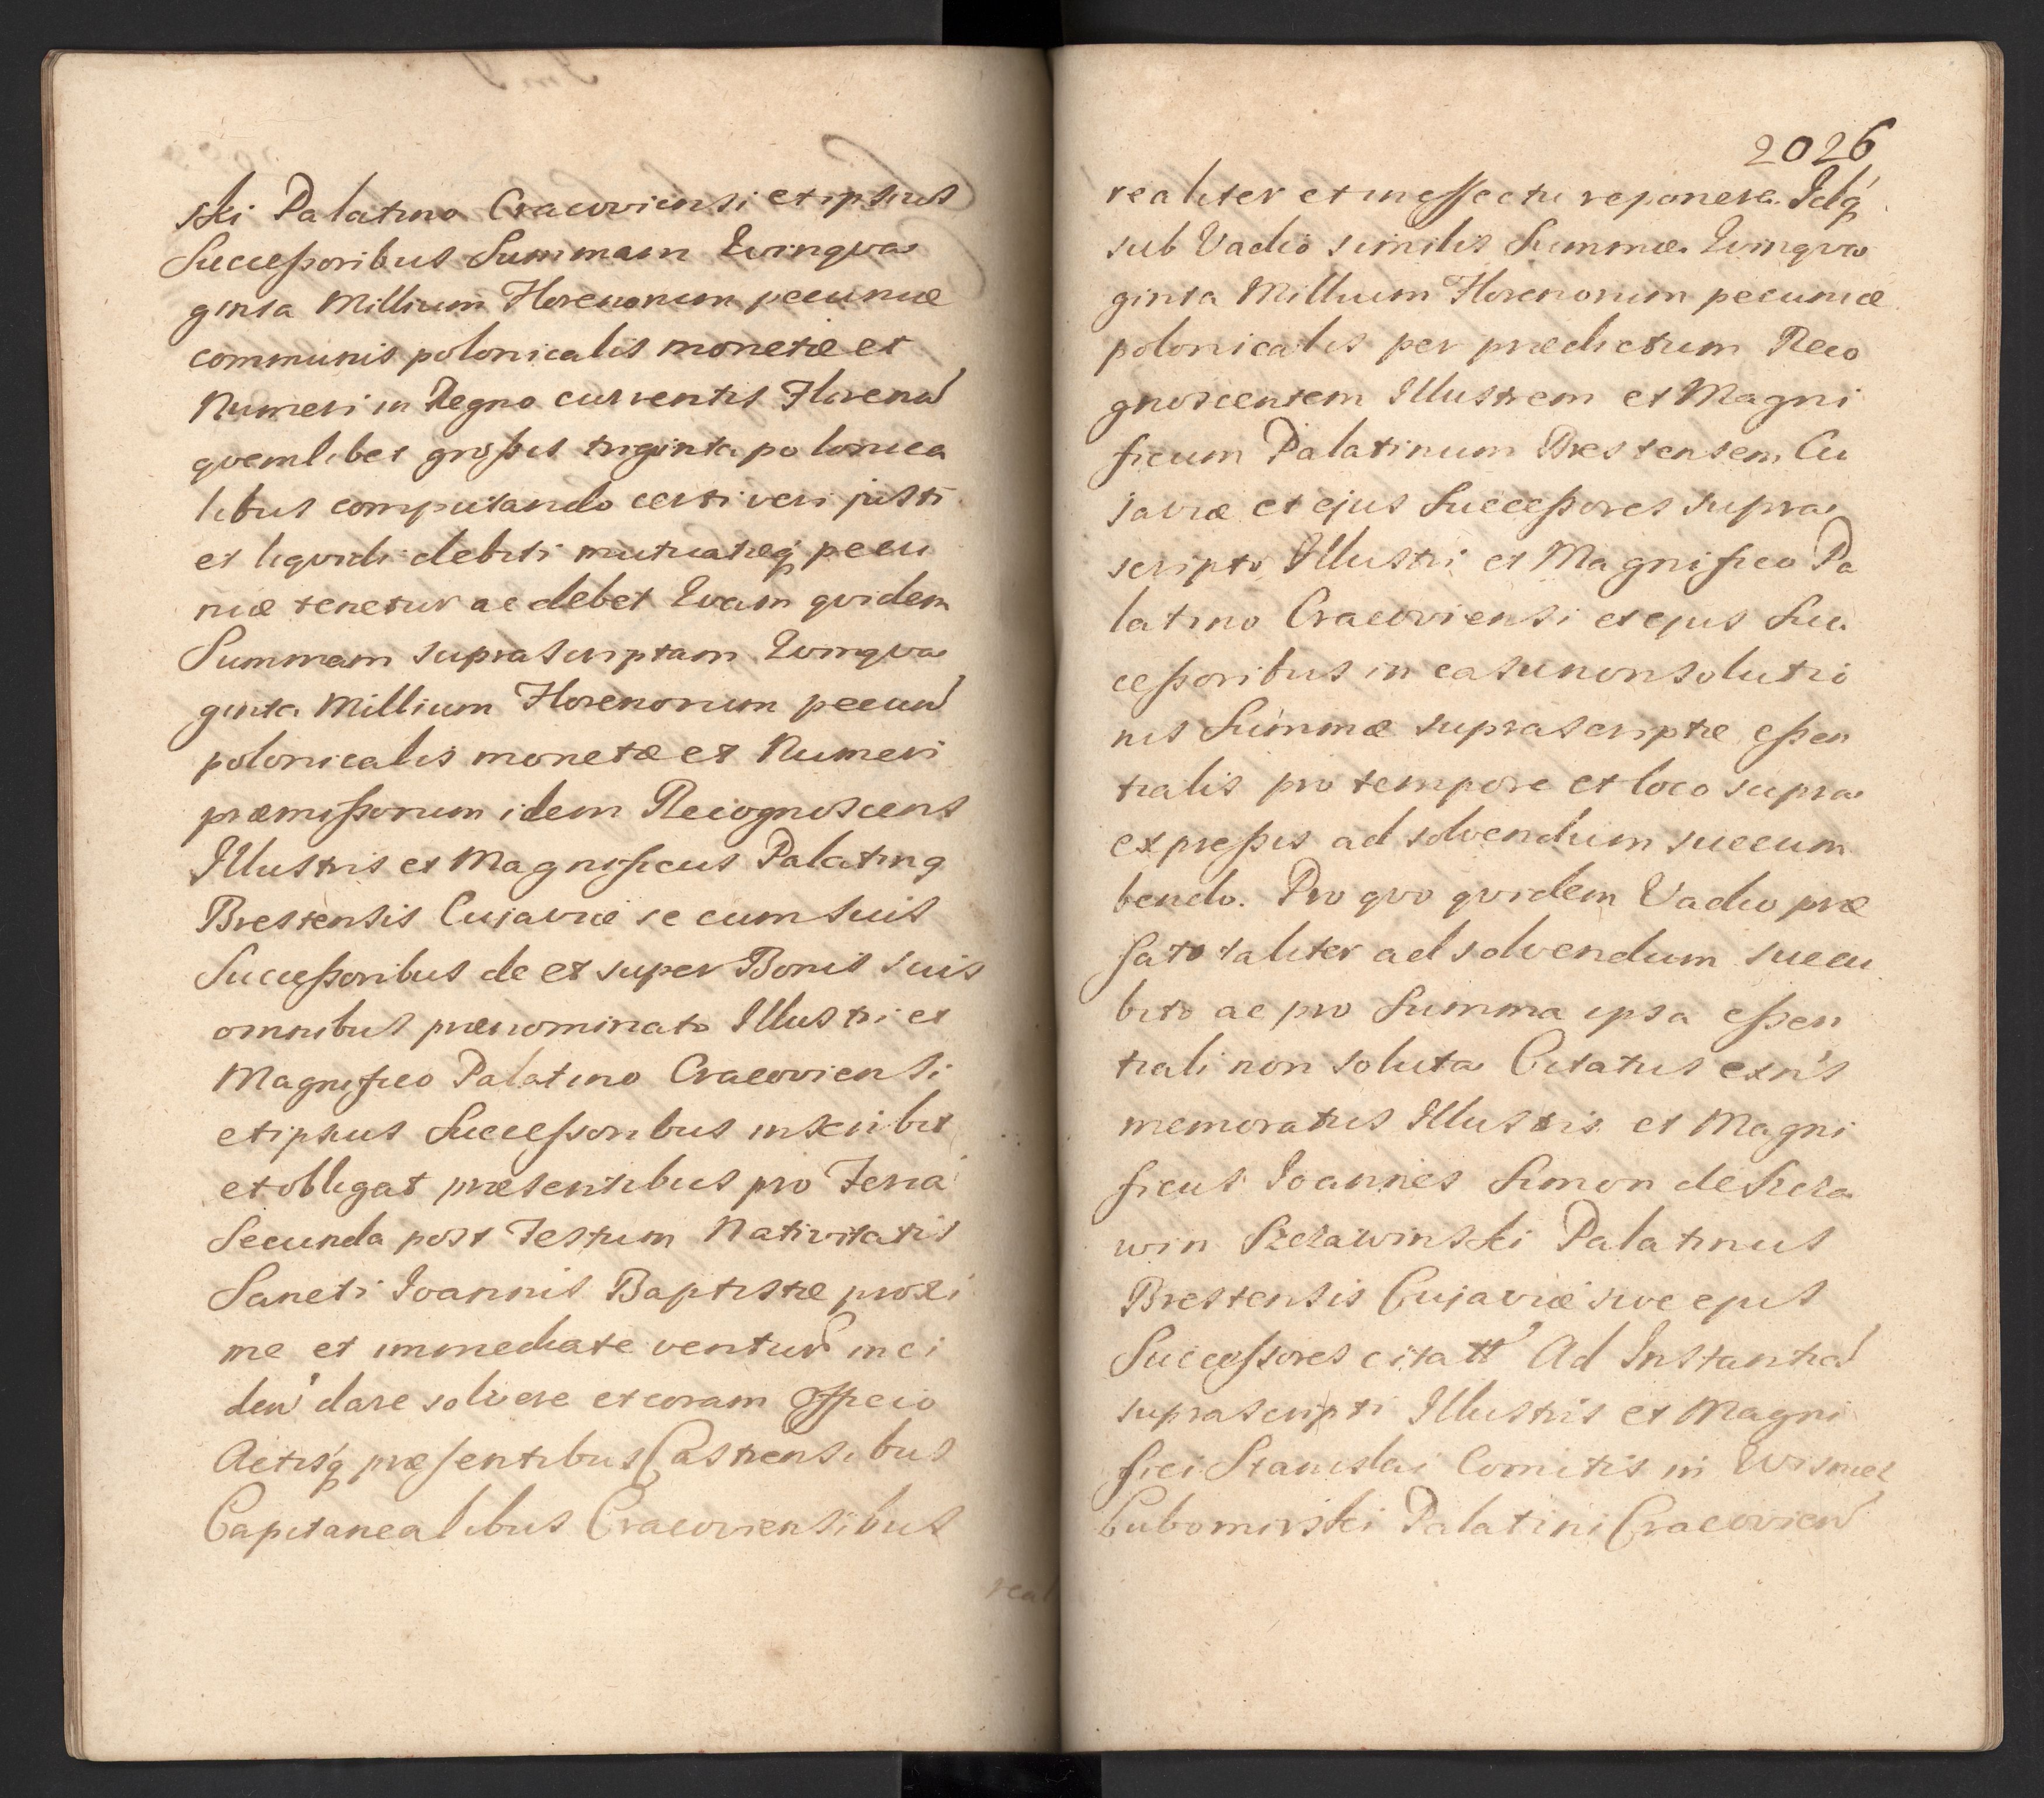 ski Palatino Cracoviensi et ipsius
Successoribus Summam Qvinqva
ginta Millium Florenorum pecuniæ
communis polonicalis monetæ et
Numeri in Regno currentis Floren̄
qvemlibet grossis triginta polonica
libus computando certi veri justi
et liqvidi debiti mutuatæq́ pecu
niæ tenetur ac debet Qvam qvidem
Summam suprascriptam Qvinqva
ginta Millium Florenorum pecun̄
polonicalis monetæ et Numeri
præmissorum idem Recognoscens
Illustris et Magnificus Palatinq
Brestensis Cujaviæ se cum suis
Successoribus de et super Bonis suis
omnibus prænominato Illustri et
Magnifico Palatino Cracoviensi
et ipsius Successoribus inscribit
et obligat præsentibus pro Feria
Secunda post Festum Nativitatis
Sancti Joannis Baptistæ proxi
me et immediate ventur̄ inci
den̄ dare solvere et coram Officio
Actisq́ præsentibus Castrensibus
Capitanealibus Cracoviensibus
real
2026
realiter et in effectu reponere. Idq́
sub Vadio similis Summæ Qvinqva
ginta Millium Florenorum pecuniæ
polonicalis per prædictum Reco
gnoscentem Illustrem et Magni
ficum Palatinum Brestensem Cu
javiæ et ejus Successores supra
scripto Illustri et Magnifico Pa
latino Cracoviensi et ejus Suc
cessoribus in casu non solutio
nis Summæ suprascriptæ essen
tialis pro tempore et loco supra
expressis ad solvendum succum
bendo. Pro qvo qvidem Vadio præ
fato taliter ad solvendum succu
bito ac pro Summa ipsa essen
tiali non soluta Citatus exn's
memoratus Illustris et Magni
ficus Joannes Simon de Szcza
win Szczawinski Palatinus
Brestensis Cujaviæ sive ejus
Successores citatt' Ad Instantia̅
suprascripti Illustris et Magni
fici Stanislai Comitis in Wisnicz
Lubomirski Palatini Cracovien̄